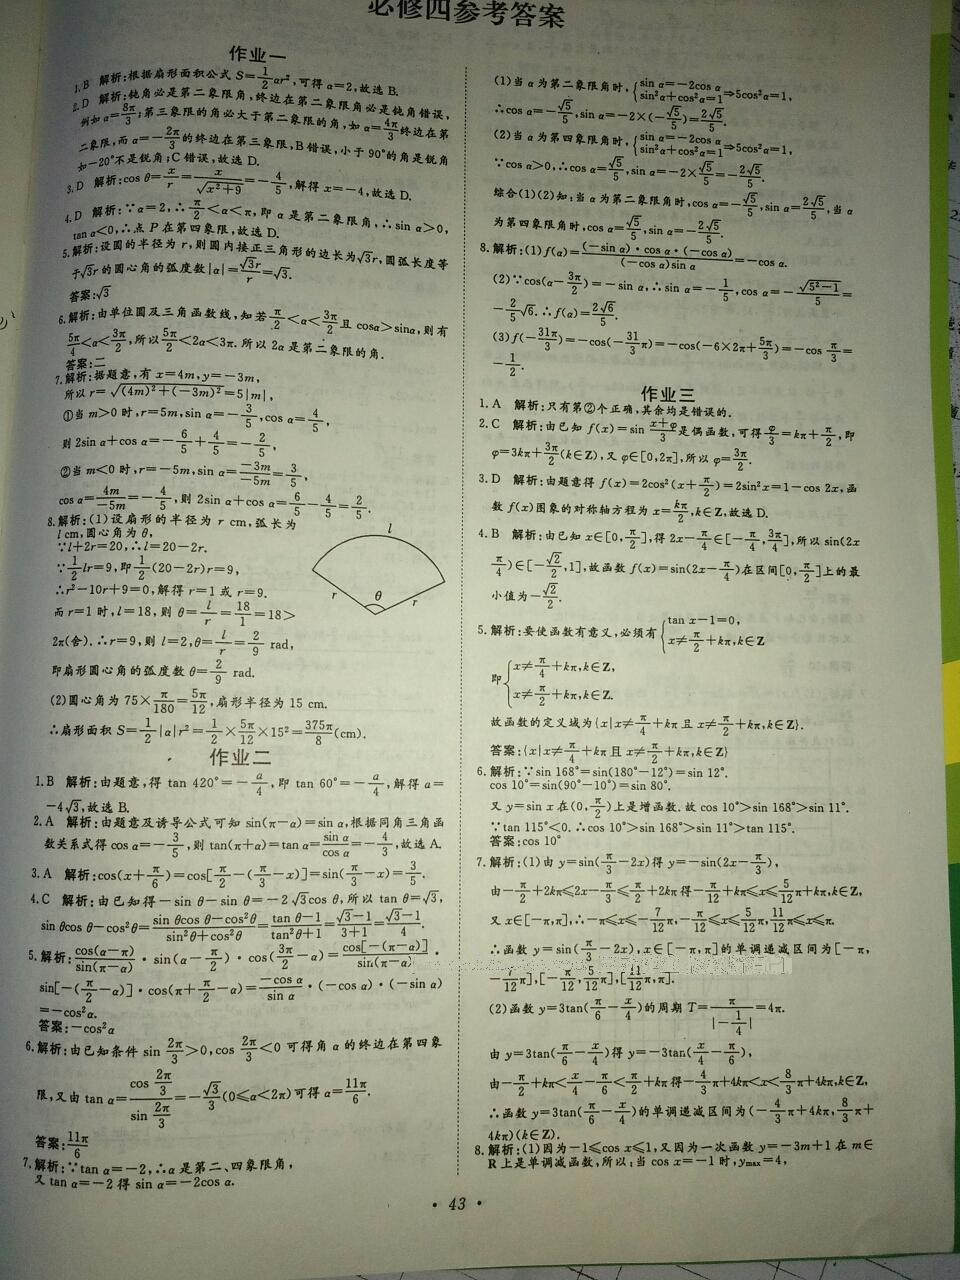 必修四参考答案
作业一
1.B 解析:根据扇形面积公式 S=1/2αr²,可得 α=2,故选 B.
2.D 解析:钝角必是第二象限角,终边在第二象限角必是钝角错误,
例如 α=8π/3;第三象限的角必大于第二象限的角,如 α=4π/3终边在第
二象限,而 α=-2π/3的终边在第三象限,B错误,小于 90°的角是锐角
如-20°不是锐角;C错误,故选 D.
3.D 解析:cos θ=x/r=x/√(x²+9)=-4/5,解得 x=-4,故选 D.
4.D 解析:∵α=2,∴π/2<α<π,即 α 是第二象限角,∴sin α>0,
tan α<0,∴点 P在第四象限,故选 D.
5.解析:设圆的半径为 r,则圆内接正三角形的边长为√3r,圆弧长度等
于√3r的圆心角的弧度数|α|=√3r/r=√3.
答案:√3
6.解析:由单位圆及三角函数线,知若π/2<α<3π/2且 cosα>sinα,则有
5π/4<α<3π/2,所以5π/2<2α<3π.所以 2α是第二象限的角.
答案:二
7.解析:据题意,有 x=4m,y=-3m,
所以 r=√((4m)²+(-3m)²)=5|m|,
①当 m>0 时,r=5m,sin α=-3/5,cos α=4/5,
则 2sin α+cos α=-6/5+4/5=-2/5,
②当 m<0 时,r=-5m,sin α=-3m/-5m=3/5,
cos α=4m/-5m=-4/5,则 2sin α+cos α=6/5-4/5=2/5.
8.解析:(1)设扇形的半径为 r cm,弧长为
l cm,圆心角为 θ,
∵l+2r=20,∴l=20-2r.
∵1/2lr=9,即1/2(20-2r)r=9,
∴r²-10r+9=0,解得 r=1 或 r=9.
而 r=1 时,l=18,则 θ=l/r=18/1=18>
2π(舍).∴r=9,则 l=2,θ=l/r=2/9 rad,
即扇形圆心角的弧度数 θ=2/9 rad.
l
r θ r
(2)圆心角为 75×π/180=5π/12,扇形半径为 15 cm.
∴扇形面积 S=1/2|α|r²=1/2×5π/12×15²=375π/8(cm).
作业二
1.B 解析:由题意,得 tan 420°=-a/4,即 tan 60°=-a/4,解得 a=
-4√3,故选 B.
2.A 解析:由题意及诱导公式可知 sin(π-α)=sin α,根据同角三角函
数关系式得 cos α=-3/5,则 tan(π+α)=tan α=sin α/cos α=-4/3,故选 A.
3.A 解析:cos(x+π/6)=cos[π/2-(π/3-x)]=sin(π/3-x)=3/5.
4.C 解析:由已知得-sin θ-sin θ=-2√3cos θ,所以 tan θ=√3,
sin θcos θ-cos²θ=(sin θcos θ-cos²θ)/(sin²θ+cos²θ)=(tan θ-1)/(tan²θ+1)=(√3-1)/(3+1)=(√3-1)/4.
5.解析:cos(α-π)/sin(π-α)·sin(α-π/2)·cos(3π/2-α)=cos[-(π-α)]/sin(π-α)·
sin[-(π/2-α)]·cos(π+π/2-α)=-cos α/sin α·(-cos α)·(-sin α)
=-cos²α.
答案:-cos²α
6.解析:由已知条件 sin 2π/3>0,cos 2π/3<0 可得角 α 的终边在第四象
限,又由 tan α=cos 2π/3/sin 2π/3=-√3/3(0⩽α<2π)可得 α=11π/6.
答案:11π/6
7.解析:∵tan α=-2,∴α 是第二、四象限角,
又 tan α=-2 得 sin α=-2cos α.
(1)当 α 为第二象限角时,{sin α=-2cos α sin²α+cos²α=1⇒5cos²α=1,
∴cos α=-√5/5,sin α=-2×(-√5/5)=2√5/5.
(2)当 α 为第四象限角时,{sin α=-2cos α sin²α+cos²α=1⇒5cos²α=1,
∵cos α>0,∴cos α=√5/5,sin α=-2×√5/5=-2√5/5.
综合(1)(2)知:当 α 为第二象限角时,cos α=-√5/5,sin α=2√5/5,当 α
为第四象限角时,cos α=√5/5,sin α=-2√5/5.
8.解析:(1)f(α)=(-sin α)·cos α·(-cos α)/(-cos α)sin α=-cos α.
(2)∵cos(α-3π/2)=-sin α,∴sin α=-1/5,cos α=-√(5²-1)/5=
-2/5√6.∴f(α)=2√6/5.
(3)f(-31π/3)=-cos(-31/3π)=-cos(-6×2π+5π/3)=-cos π/3=
-1/2.
作业三
1.A 解析:只有第②个正确,其余均是错误的.
2.C 解析:由已知 f(x)=sin (x+φ)/3是偶函数,可得φ/3=kπ+π/2,即
φ=3kπ+3π/2(k∈Z),又 φ∈[0,2π],所以 φ=3π/2.
3.D 解析:由题意得 f(x)=2cos²(x+π/2)=2sin²x=1-cos 2x,函
数 f(x)图象的对称轴方程为 x=kπ/2,k∈Z,故选 D.
4.B 解析:由已知 x∈[0,π/2],得 2x-π/4∈[-π/4,3π/4],所以 sin(2x
π/4)∈[-√2/2,1],故函数 f(x)=sin(2x-π/4)在区间[0,π/2]上的最
小值为-√2/2.
5.解析:要使函数有意义,必须有{tan x-1=0, x≠π/2+kπ,k∈Z
即{x≠π/4+kπ,k∈Z, x≠π/2+kπ,k∈Z.
故函数的定义域为{x|x≠π/4+kπ 且 x≠π/2+kπ,k∈Z}.
答案:{x|x≠π/4+kπ 且 x≠π/2+kπ,k∈Z}
6.解析:∵sin 168°=sin(180°-12°)=sin 12°.
cos 10°=sin(90°-10°)=sin 80°.
又 y=sin x 在(0,π/2)上是增函数.故 cos 10°>sin 168°>sin 11°.
∵tan 115°<0.∴cos 10°>sin 168°>sin 11°>tan 115°.
答案:cos 10°
7.解析:(1)由 y=sin(π/3-2x)得 y=-sin(2x-π/3),
由-π/2+2kπ⩽2x-π/3⩽π/2+2kπ 得-π/12+kπ⩽x⩽5/12π+kπ,k∈Z,
又 x∈[-π,π],∴-π⩽x⩽-7/12π,-π/12⩽x⩽5/12π,11/12π⩽x⩽π.
∴函数 y=sin(π/3-2x),x∈[-π,π]的单调递减区间为[-π,
-7/12π],[-π/12,5/12π],[11/12π,π].
(2)函数 y=3tan(π/6-x/4)的周期 T=π/|-1/4|=4π.
由 y=3tan(π/6-x/4)得 y=-3tan(x/4-π/6),
由-π/2+kπ<x/4-π/6<π/2+kπ 得-4/3π+4kπ<x<8/3π+4kπ,k∈Z,
∴函数 y=3tan(π/6-x/4)的单调递减区间为(-4/3π+4kπ,8/3π+
4kπ)(k∈Z).
8.解析:(1)因为-1⩽cos x⩽1,又因为一次函数 y=-3m+1 在 m∈
R上是单调减函数,所以:当 cos x=-1 时,ymax=4,
· 43 ·